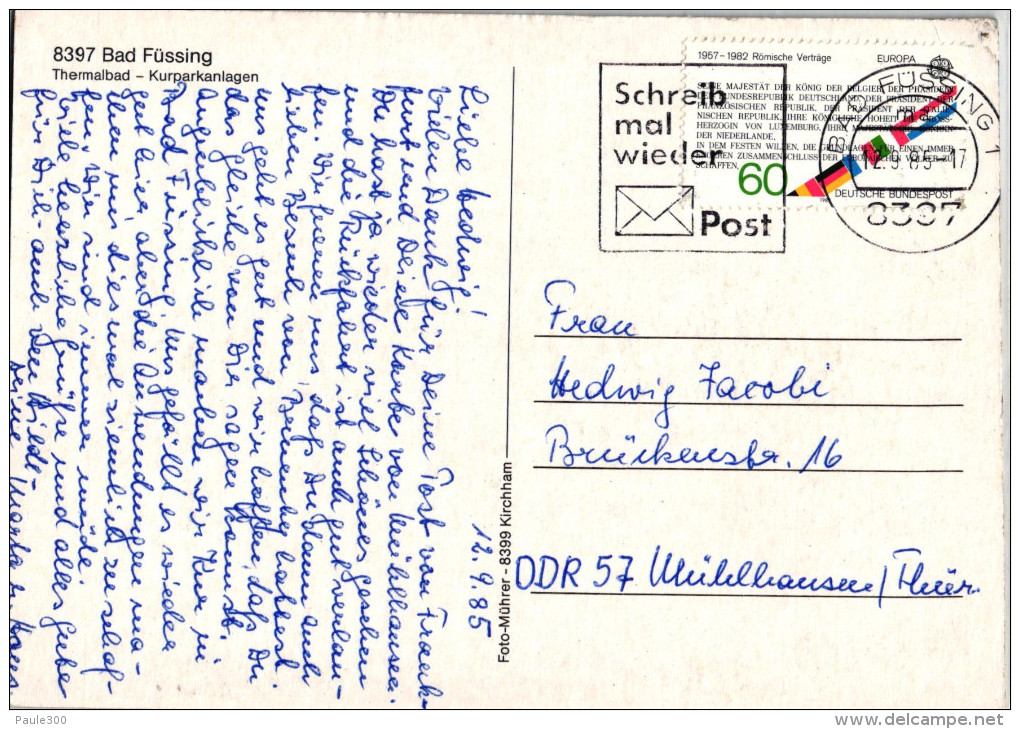 8397 Bad Füssing
Thermalbad – Kurparkanlagen
12.9.85
Liebe Hedwig!
Vielen Dank für Deine Post von Frank-
furt und Deine Karte von Mühlhausen.
Du hast ja wieder viel Schönes gesehen
und die Rückfahrt ist auch gut verlau-
fen. Wir freuen uns, daß Du dann auch
lieben Besuch von hattest.
Uns geht es gut und wir hoffen, daß Du
das gleiche von Dir sagen kannst.
Augenblicklich machen wir Kur in
Bad Füssing. Uns gefällt es wieder
gut hier, aber die Anwendungen ma-
chen uns diesmal ziemlich zu schaf-
fen. Wir sind immer müde.
Viele herzliche Grüße und alles Gute
für Dich – auch von Hilde –
Deine Marta u. Hans
Foto-Mührer - 8399 Kirchham
Schreib
mal
wieder
Post
1957–1982 Römische Verträge
EUROPA
SEINE MAJESTÄT DER KÖNIG DER BELGIER, DER PRÄSIDENT
DER BUNDESREPUBLIK DEUTSCHLAND, DER PRÄSIDENT DER
FRANZÖSISCHEN REPUBLIK, DER PRÄSIDENT DER ITALIE-
NISCHEN REPUBLIK, IHRE KÖNIGLICHE HOHEIT DIE GROSS-
HERZOGIN VON LUXEMBURG, IHRE MAJESTÄT DIE KÖNIGIN
DER NIEDERLANDE.
IN DEM FESTEN WILLEN, DIE GRUNDLAGEN FÜR EINEN IMMER
ENGEREN ZUSAMMENSCHLUSS DER EUROPÄISCHEN VÖLKER ZU
SCHAFFEN,
60
DEUTSCHE BUNDESPOST
BAD FÜSSING 1
12.9.85-17
8397
Frau
Hedwig Jacobi
Brückenstr. 16
DDR 57 Mühlhausen/Thür.
Paule300
www.delcampe.net